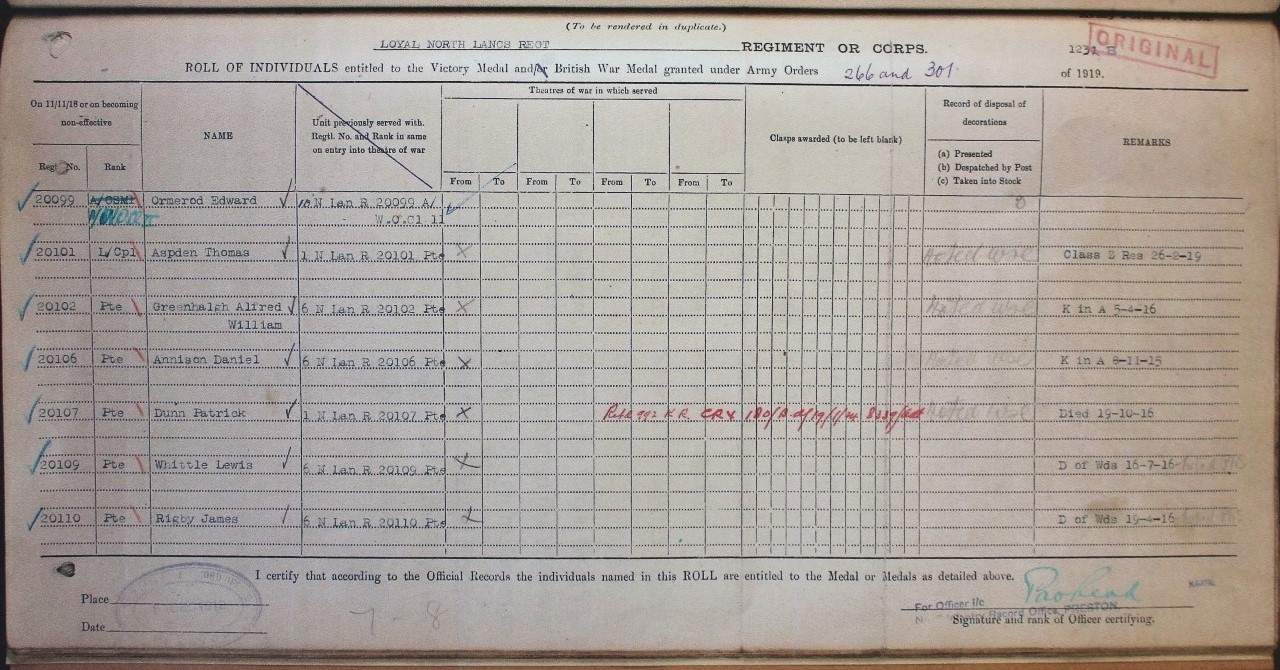 (To be rendered in duplicate.)
LOYAL NORTH LANCS REGT REGIMENT OR CORPS.
ORIGINAL
ROLL OF INDIVIDUALS entitled to the Victory Medal and/or British War Medal granted under Army Orders 266 and 301. of 1919.
On 11/11/18 or on becoming non-effective
Regtl. No. Rank
NAME
Unit previously served with.
Regtl. No. and Rank in same
on entry into theatre of war
Theatres of war in which served
From To From To From To From To
Clasps awarded (to be left blank)
Record of disposal of
decorations
(a) Presented
(b) Despatched by Post
(c) Taken into Stock
REMARKS
20099 A/CSMI Ormerod Edward N Lan R 20099 A/
W.O.Cl 11
20101 L/Cpl Aspden Thomas 1 N Lan R 20101 Pte X Class Z Res 26-2-19
20102 Pte Greenhalgh Alfred 6 N Lan R 20102 Pte X K in A 5-4-16
William
20106 Pte Annison Daniel 6 N Lan R 20106 Pte X K in A 8-11-15
20107 Pte Dunn Patrick 1 N Lan R 20107 Pte X 992 K R Died 19-10-16
20109 Pte Whittle Lewis 6 N Lan R 20109 Pte X D of Wds 16-7-16
20110 Pte Rigby James 6 N Lan R 20110 Pte X D of Wds 19-4-16
I certify that according to the Official Records the individuals named in this ROLL are entitled to the Medal or Medals as detailed above.
Place
For Officer i/c
Record Office, PRESTON
Date
7 - 8
Signature and rank of Officer certifying.